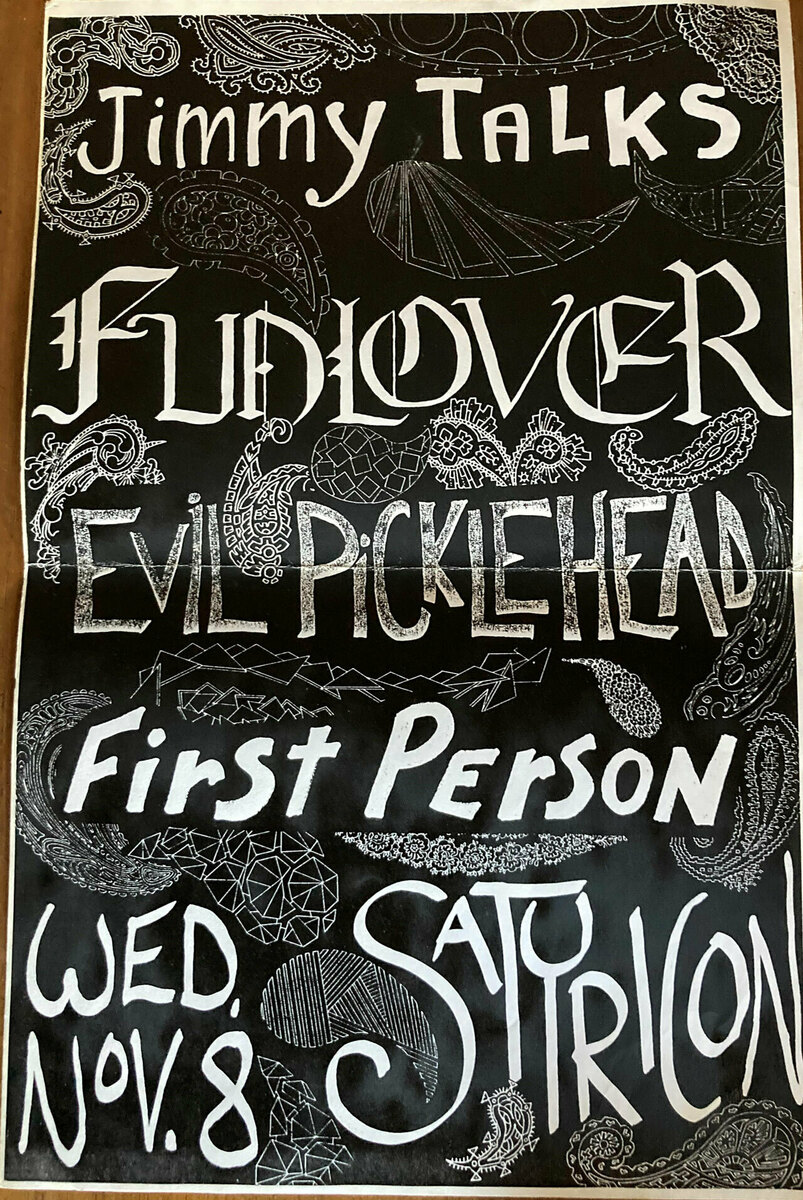 Jimmy TALKS
FUNLOVER
EViL PiCKLEHEAD
First PErsoN
WED.
NOV. 8
SATYRICON